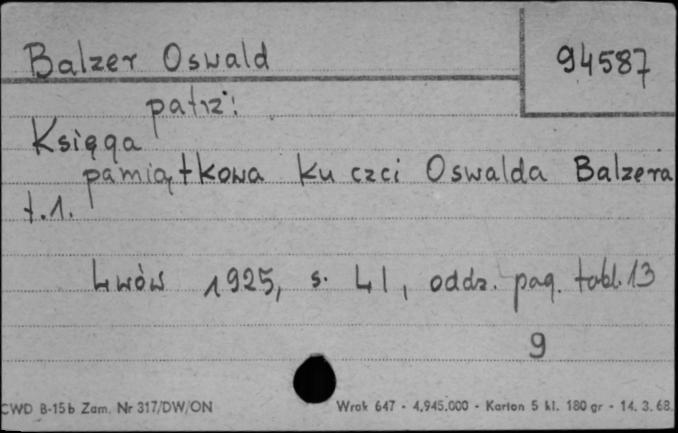 Balzer Oswald
94587
patrz:
Księga
pamiątkowa ku czci Oswalda Balzera
t.1.
Lwów 1925, s. LI, oddz. pag. tabl. 13
9
CWD B-15b Zam. Nr 317/DW/ON Wrok 647 - 4.945.000 - Karton 5 kl. 180 gr - 14. 3. 68.